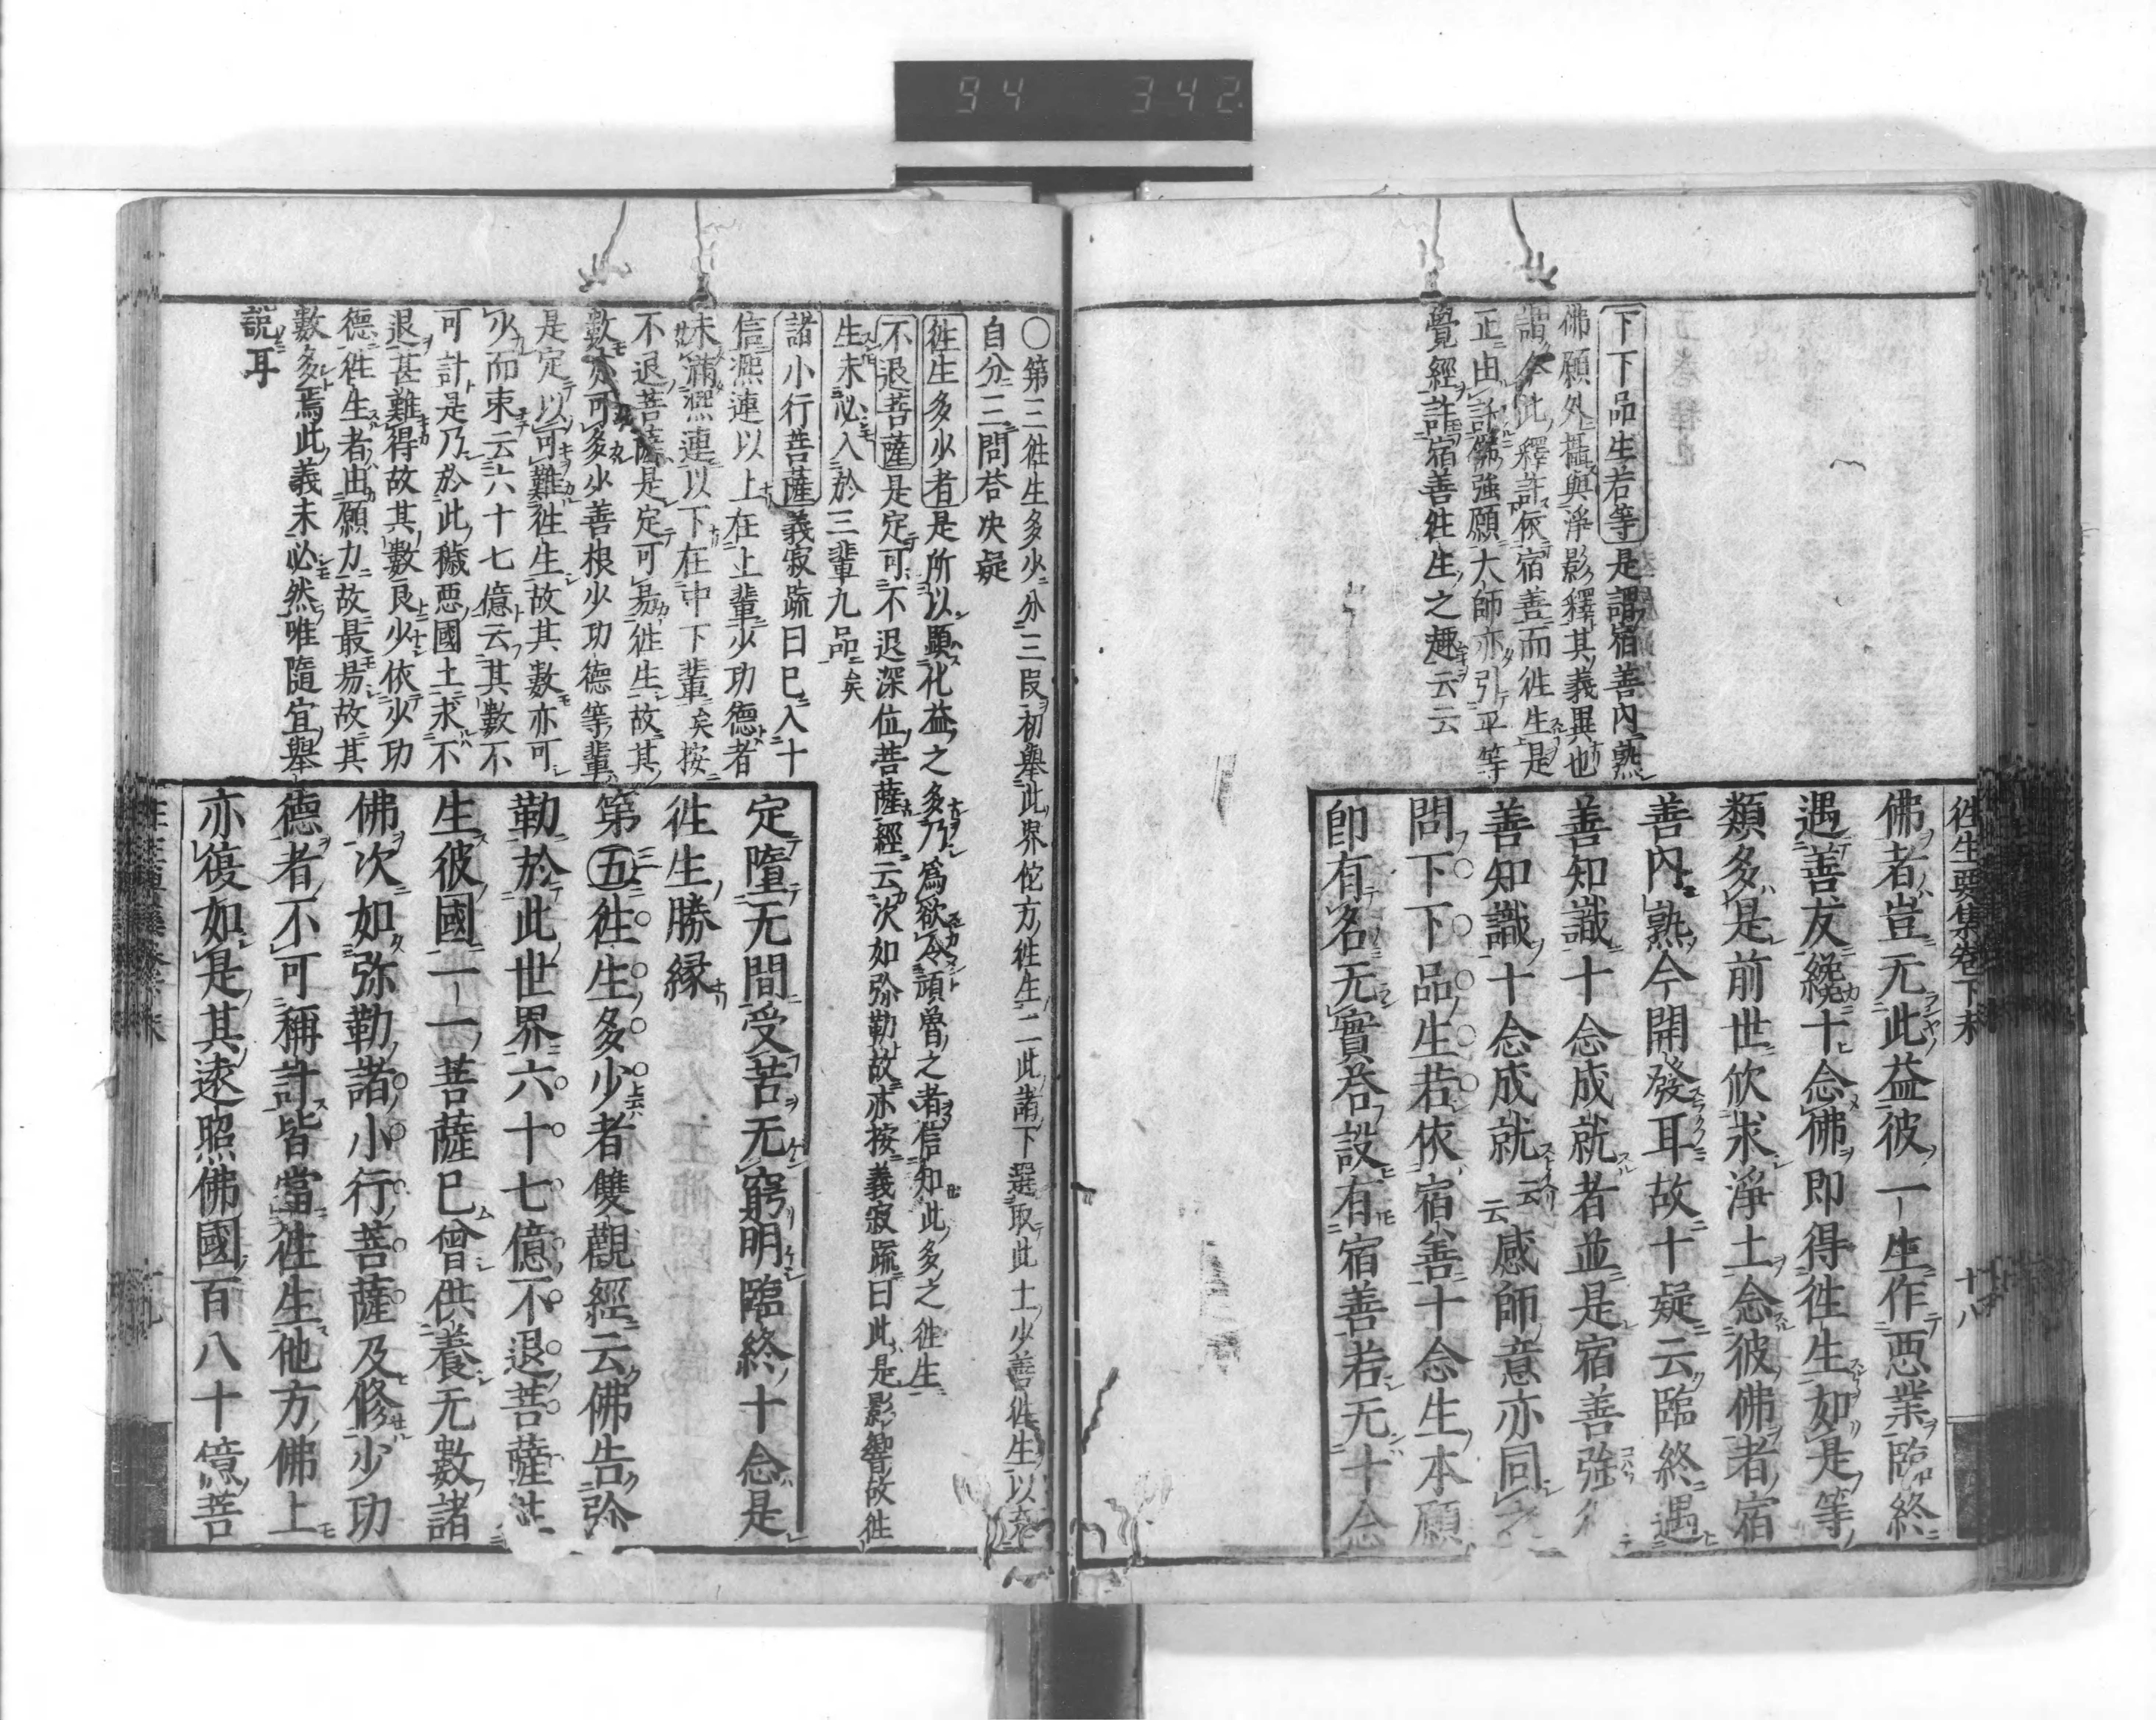 94 342
徃生要集卷下末
十八
下下品生若等是謂宿善內熟
佛願外攝與淨影釋其義異也
謂今此釋許依宿善而徃生是
正由許佛強願大師亦引平等
覺經許宿善徃生之趣云云
佛者豈无此益彼一生作悪業臨終
遇善友纔十念佛即得徃生如是等
類多是前世欣求淨土念彼佛者宿
善內熟今開發耳故十疑云臨終遇
善知識十念成就者並是宿善強
善知識十念成就云云感師意亦同之
問下下品生若依宿善十念生本願
卽有名无實答設有宿善若无十念
〇第三徃生多少分三叚初舉此界佗方徃生二此諸下選取此土少善徃生以充
自分三問答决疑
徃生多少者是所以顯化益之多乃爲欲令頑魯之者信知此多之徃生
不退菩薩是定可不退深位菩薩經云次如弥勒故亦按義寂䟽曰此是影響故徃
生未必入於三輩九品矣
諸小行菩薩義寂䟽曰已入十
信凞連以上在上輩少功德者
未滿凞連以下在中下輩矣按
不退菩薩是定可易徃生故其
數亦可多少善根少功德等輩
是定以可難徃生故其數亦可
少而束云六十七億云其數不
可計是乃於此穢悪國土求不
退甚難得故其數良少依少功
德徃生者由願力故最易故其
數多焉此義未必然唯隨宜舉
説耳
定墮无間受苦无窮明臨終十念是
徃生勝縁
第五徃生多少者雙觀經云佛告弥
勒於此世界六十七億不退菩薩徃
生彼國一一菩薩已曾供養无數諸
佛次如弥勒諸小行菩薩及修少功
德者不可稱計皆當徃生他方佛土
亦復如是其遠照佛國百八十億菩